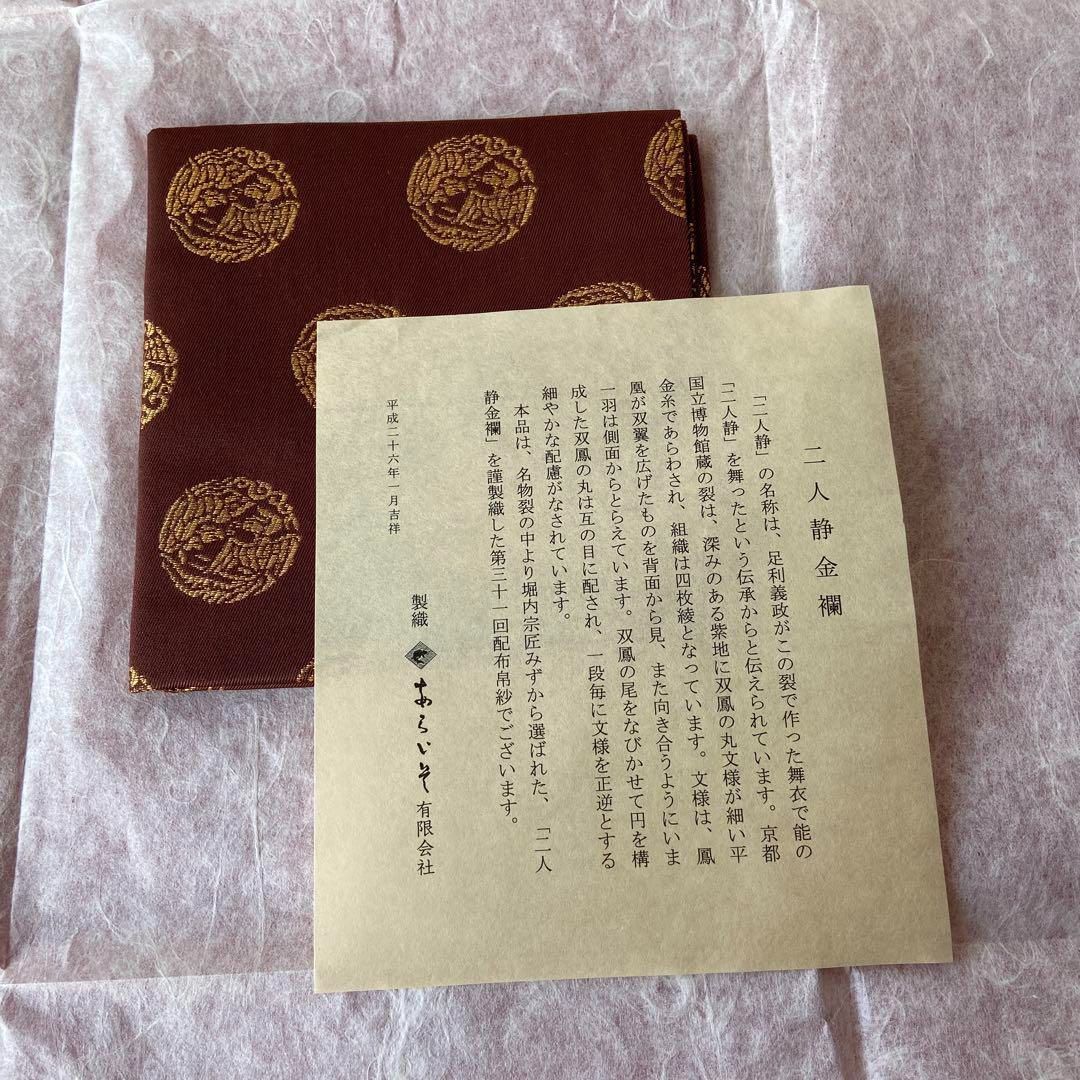 二人静金襴
「二人静」の名称は、足利義政がこの裂で作った舞衣で能の
「二人静」を舞ったという伝承からと伝えられています。京都
国立博物館蔵の裂は、深みのある紫地に双鳳の丸文様が細い平
金糸であらわされ、組織は四枚綾となっています。文様は、鳳
凰が双翼を広げたものを背面から見、また向き合うようにいま
一羽は側面からとらえています。双鳳の尾をなびかせて円を構
成した双鳳の丸は互の目に配され、一段毎に文様を正逆とする
細やかな配慮がなされています。
本品は、名物裂の中より堀内宗匠みずから選ばれた、「二人
静金襴」を謹製織した第三十一回配布帛紗でございます。
平成二十六年一月吉祥
製織 あらいそ有限会社